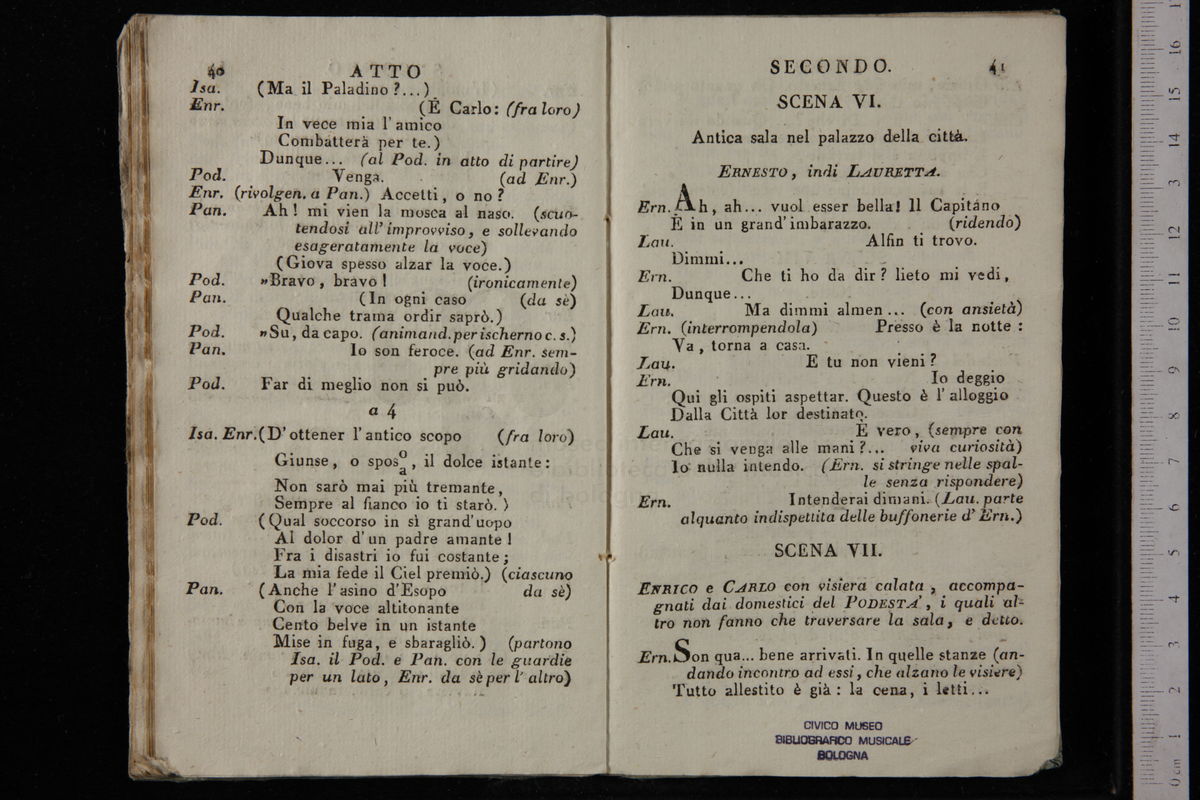 40 ATTO
Isa. (Ma il Paladino?...)
Enr. (È Carlo: (fra loro)
In vece mia l'amico
Combatterà per te.)
Dunque... (al Pod. in atto di partire)
Pod. Venga. (ad Enr.)
Enr. (rivolgen. a Pan.) Accetti, o no?
Pan. Ah! mi vien la mosca al naso. (scuo-
tendosi all'improvviso, e sollevando
esageratamente la voce)
(Giova spesso alzar la voce.)
Pod. »Bravo, bravo! (ironicamente)
Pan. (In ogni caso (da sè)
Qualche trama ordir saprò.)
Pod. »Su, da capo. (animand. per ischerno c. s.)
Pan. Io son feroce. (ad Enr. sem-
pre più gridando)
Pod. Far di meglio non si può.
a 4
Isa. Enr. (D'ottener l'antico scopo (fra loro)
Giunse, o spos o/a, il dolce istante:
Non sarò mai più tremante,
Sempre al fianco io ti starò.)
Pod. (Qual soccorso in sì grand'uopo
Al dolor d'un padre amante!
Fra i disastri io fui costante;
La mia fede il Ciel premiò.) (ciascuno
Pan. (Anche l'asino d'Esopo da sè)
Con la voce altitonante
Cento belve in un istante
Mise in fuga, e sbaragliò.) (partono
Isa. il Pod. e Pan. con le guardie
per un lato, Enr. da sè per l'altro)
SECONDO. 41
SCENA VI.
Antica sala nel palazzo della città.
ERNESTO, indi LAURETTA.
Ern. Ah, ah... vuol esser bella! Il Capitano
È in un grand'imbarazzo. (ridendo)
Lau. Alfin ti trovo.
Dimmi...
Ern. Che ti ho da dir? lieto mi vedi,
Dunque...
Lau. Ma dimmi almen... (con ansietà)
Ern. (interrompendola) Presso è la notte:
Va, torna a casa.
Lau. E tu non vieni?
Ern. Io deggio
Qui gli ospiti aspettar. Questo è l'alloggio
Dalla Città lor destinato.
Lau. È vero, (sempre con
Che si venga alle mani?... viva curiosità)
Io nulla intendo. (Ern. si stringe nelle spal-
le senza rispondere)
Ern. Intenderai dimani. (Lau. parte
alquanto indispettita delle buffonerie d'Ern.)
SCENA VII.
ENRICO e CARLO con visiera calata, accompa-
gnati dai domestici del PODESTA', i quali al-
tro non fanno che traversare la sala, e detto.
Ern. Son qua... bene arrivati. In quelle stanze (an-
dando incontro ad essi, che alzano le visiere)
Tutto allestito è già: la cena, i letti...
CIVICO MUSEO
BIBLIOGRAFICO MUSICALE
BOLOGNA
0 cm 1 2 3 4 5 6 7 8 9 10 11 12 13 14 15 16 17